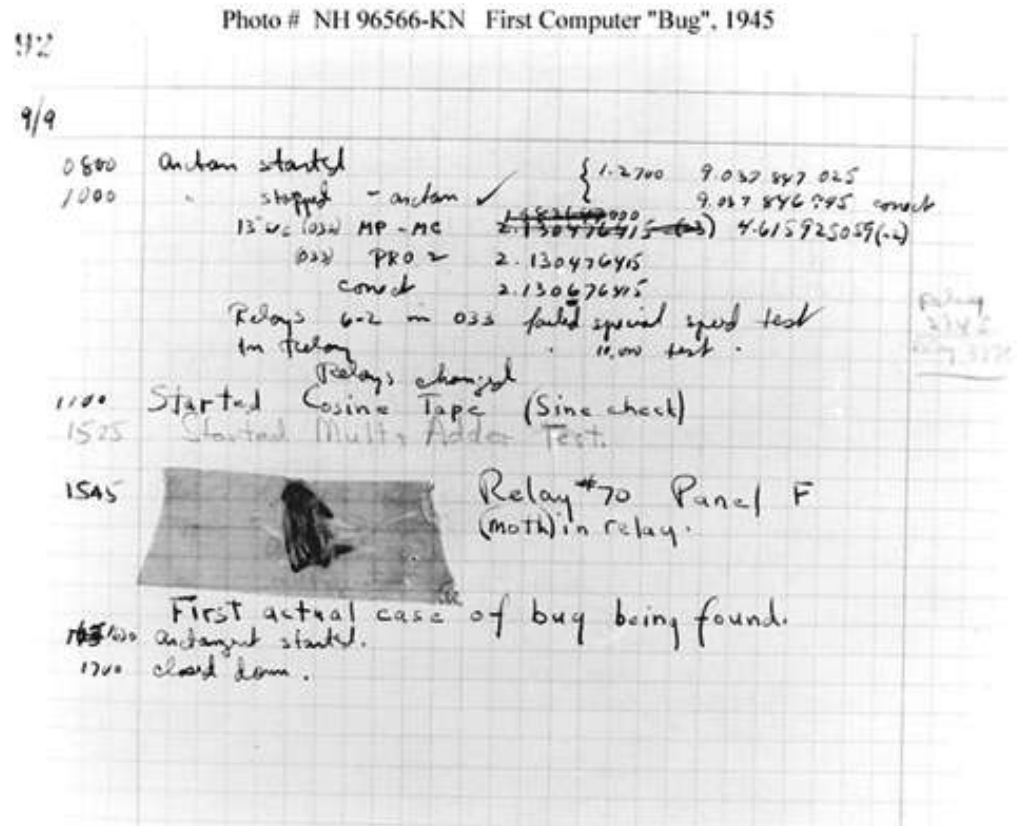 Photo # NH 96566-KN First Computer "Bug", 1945
92
9/9
0800 antan started { 1.2700 9.037 847 025
1000 " stopped - antan ✓ 9.037 846 795 conect
13" uc (032) MP - MC 2.130476415 (-3) 4.615925059(-2)
(033) PRO 2 2.130476415
conect 2.130676415
Relays 6-2 in 033 failed special speed test
In Relay " 10,000 test .
Relay
3145
Relay 3370
Relays changed
1100 Started Cosine Tape (Sine check)
1525 Started Mult + Adder Test.
1545 Relay #70 Panel F
(Moth) in relay.
First actual case of bug being found.
1630 antangent started.
1700 closed down.